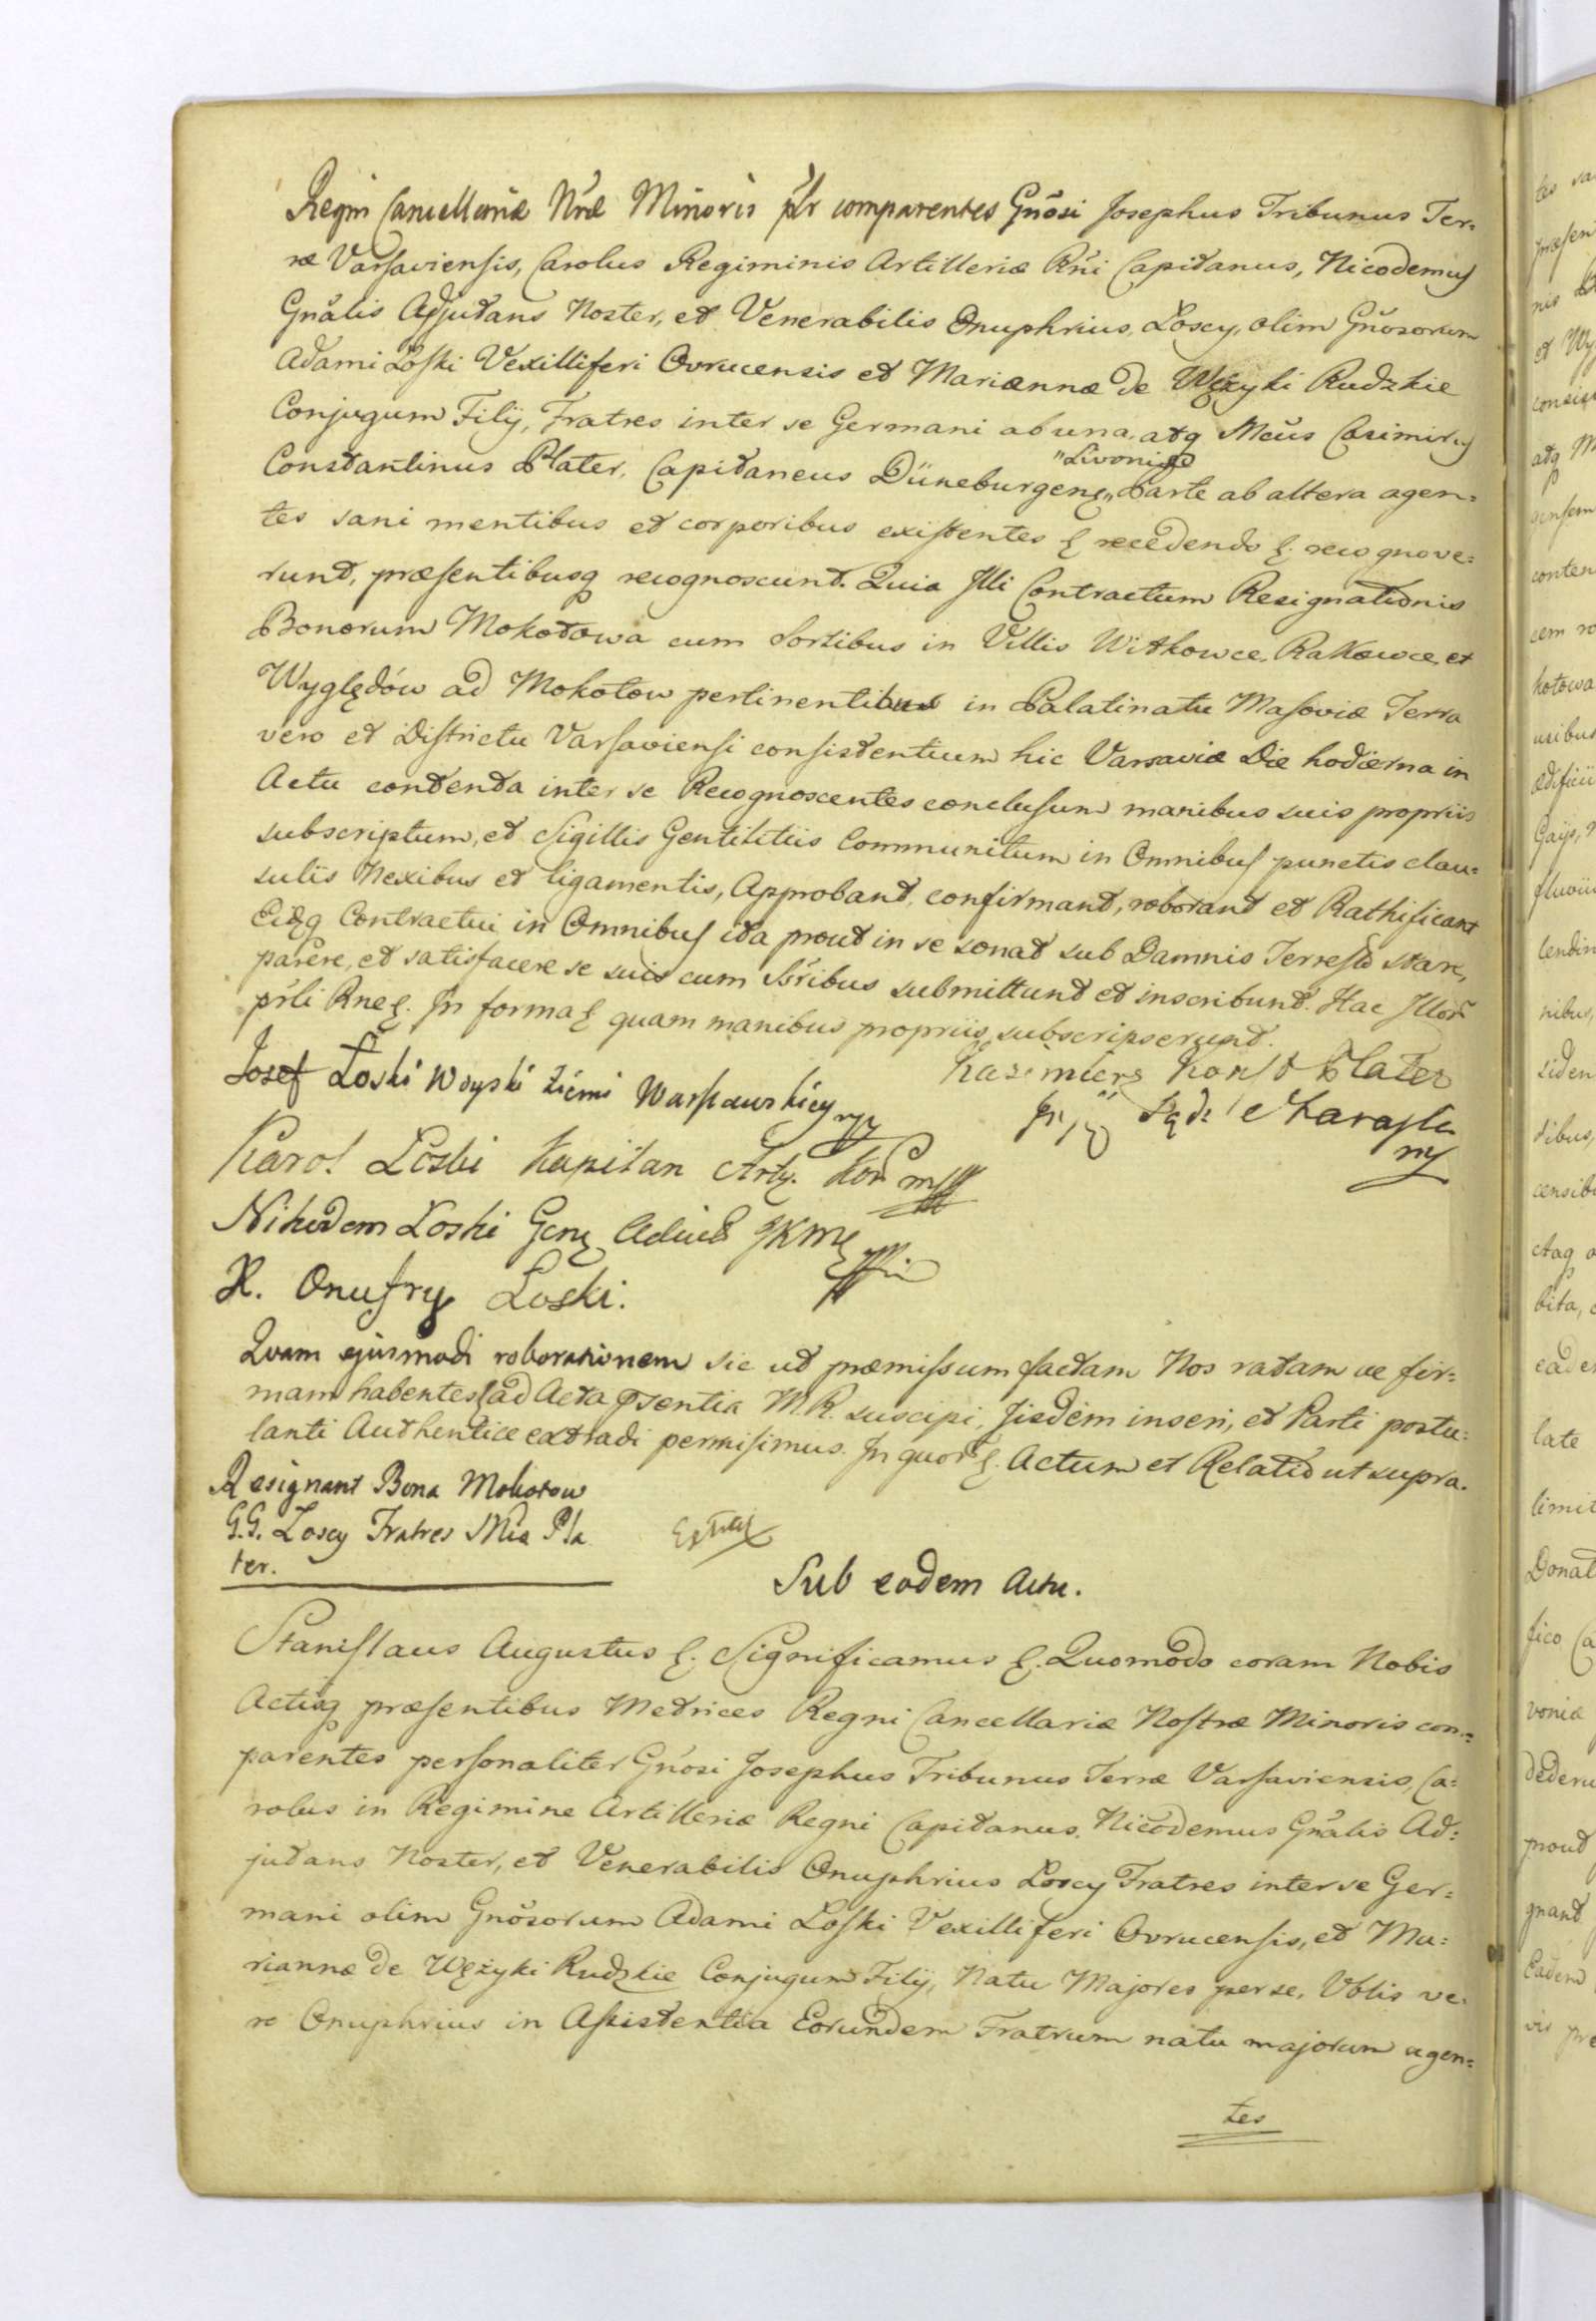 Regni Cancellariæ Nræ Minoris plr comparentes Gnosi Josephus Tribunus Ter:
ræ Varsaviensis, Carolus Regiminis Artilleriæ Rni Capitanus, Nicodemus
Gnalis Adjutans Noster, et Venerabilis Onuphrius, Loscy, olim Gnosorum
Adami Łoski Vexilliferi Ovrucensis et Mariannæ de Wężyki Rudzkie
Conjugum Filij, Fratres inter se Germani ab una, atq Mcus Casimirus
"Livoniæ
Constantinus Plater, Capitaneus Düneburgens" Parte ab altera agen:
tes sani mentibus et corporibus existentes & recedendo &. recognove:
runt, præsentibusq recognoscunt. Quia Illi Contractum Resignationis
Bonorum Mokotowa cum Sortibus in Villis Witkowce, Rakowce, et
Wyględów ad Mokotow pertinentibus in Palatinatu Masoviæ Terra
vero et Districtu Varsaviensi consistentium hic Varsaviæ Die hodierna in
Actu contenta inter se Recognoscentes conclusum manibus suis propriis
subscriptum, et Sigillis Gentilitiis Communitum in Omnibus punctis clau:
sulis Nexibus et ligamentis, Approbant, confirmant, roborant et Rathificant
Eidq Contractui in Omnibus ita prout in se sonat sub Damnis Terrestr stare,
parere, et satisfacere se suis cum Sbribus submittunt et inscribunt. Hac Illor
prli Rne&. In forma & quam manibus propriis subscripserunt.
Kazimierz Konst Plater
Josef Łoski Woyski Ziemi Warszawskiey mp
Karol Łoski Kapitan Arty. Kor mp
Nikodem Łoski Gen Adiut JKM
X. Onufry Łoski.
Quam ejusmodi roborationem sic ut præmissum factam Nos ratam ac fir:
mam habentes ad Acta præsentia M.R. suscipi, Jisdem inseri, et Parti postu:
lanti Authentice extradi permisimus. In quor &. Actum et Relatio ut supra.
Resignant Bona Mokotow
G.G. Loscy Fratres Mco Pla
ter.
Sub eodem Actu.
Stanislaus Augustus &. Significamus &. Quomodo coram Nobis
Actisq præsentibus Metrices Regni Cancellariæ Nostræ Minoris com:
parentes personaliter Gnosi Josephus Tribunus Terræ Varsaviensis, Ca:
rolus in Regimine Artilleriæ Regni Capitanus, Nicodemus Gnalis Ad:
jutans Noster, et Venerabilis Onuphrius Loscy Fratres inter se Ger:
mani olim Gnosorum Adami Loski Vexilliferi Ovrucensis, et Ma:
riannæ de Wężyki Rudzkie Conjugum Filij, Natu Majores per se, Vblis ve
ro Onuphrius in Assistentia Eorundem Fratrum natu majorum agen:
tes